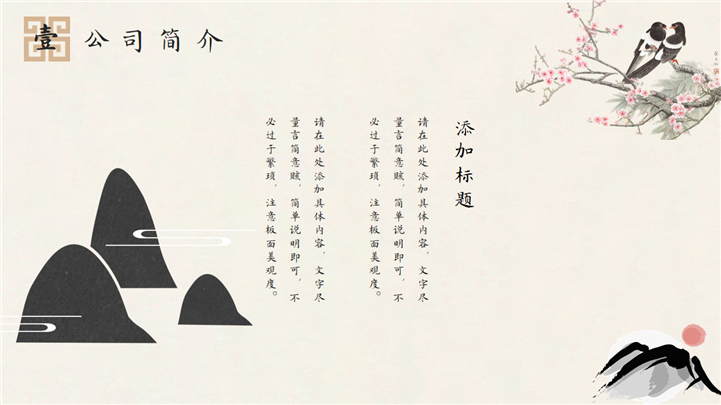 壹 公司简介
添加标题
请在此处添加具体内容，文字尽
量言简意赅，简单说明即可，不
必过于繁琐，注意板面美观度。
请在此处添加具体内容，文字尽
量言简意赅，简单说明即可，不
必过于繁琐，注意板面美观度。